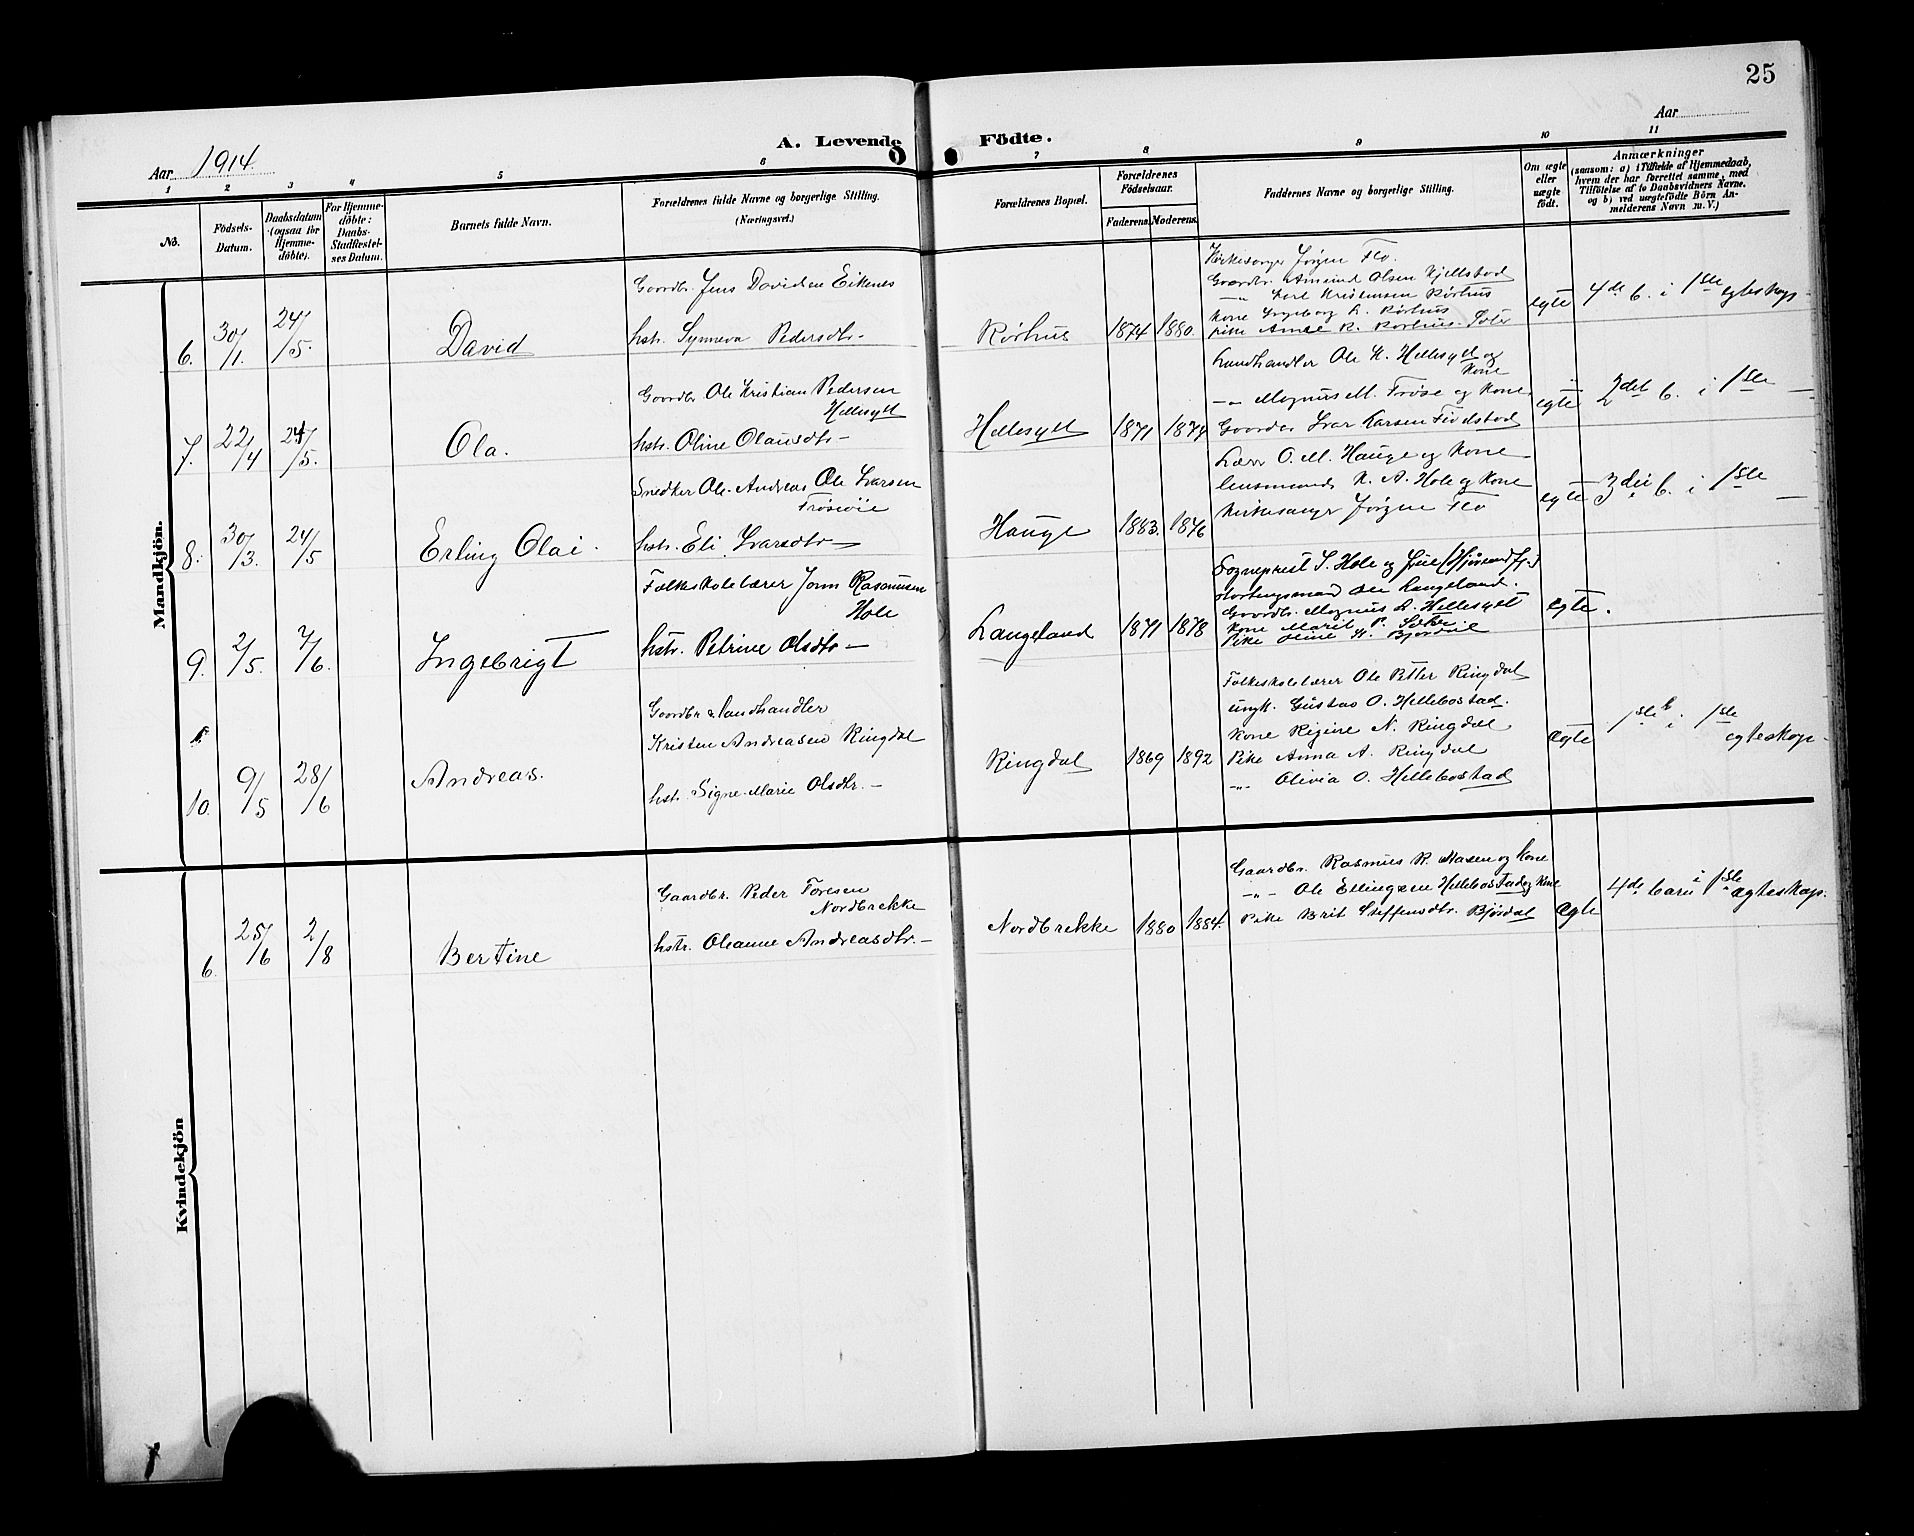 25
Aar 1914
A. Levende Födte.
Aar
1 2 3 4 5 6 7 8 9 10 11
No.
Födsels-Datum.
Daabsdatum (ogsaa for Hjemmedöbte).
For Hjemmedöbte: Daabs-Stadfæstelses Datum.
Barnets fulde Navn.
Forældrenes fulde Navne og borgerlige Stilling.
(Næringsvei.)
Forældrenes Bopæl.
Forældrenes Födselsaar.
Faderens. Moderens.
Faddernes Navne og borgerlige Stilling.
Om ægte eller uægte födt.
Anmærkninger
(saasom: a) i Tilfælde af Hjemmedaab, hvem der har forrettet samme, med Tilföielse af to Daabsvidners Navne, og b) ved uægtefödte Börn Anmelderens Navn m. V.)
Mandkjön.
6. 30/1. 24/5. David
Gaardbr. Jens Davidsen Eikenes
hstr. Synneva Pedersdtr.
Rørhus 1874 1880.
Kirkesanger Jørgen Flo.
Gaardbr. Amund Olsen Kjellstad
-"- Karl Kristensen Rørhus
Kone Ingeborg K. Rørhus
pike Anne K. Rørhus.
egte 4de b. i 1ste egteskap
7. 22/4 24/5. Ola.
Gaardbr Ole Kristian Pedersen
Hellesylt
hstr. Oline Olausdtr —
Hellesylt 1871 1874
Landhandler Ole K. Hellesylt og
Kone
-"- Magnus M. Frøse og Kone
Gaardbr Ivar Larsen
egte 2det b. i 1ste —
8. 30/3. 24/5 Erling Olai.
Snedker Ole Andreas Ole Ivarsen
hstr. Eli Ivarsdtr —
Hauge 1883. 1876
Lærer O. M. Hauge og Kone
lensmand K. A. Hole og Kone
Kirkesanger Jørgen Flo
egte 3die b. i 1ste —
9. 2/5. 7/6. Ingebrigt
Folkeskolelærer Jonn Rasmussen
Hole
hstr. Petrine Olsdtr —
Langeland 1871 1878
Sogneprest S. Hole og Frue
stortingsmand Ole Langeland.
Gaardbr. Magnus L. Hellesylt
Kone Marit P.
Pike Oline K. Bjørdal
egte.
10. 9/5 28/6 Andreas.
Gaardbr & landhandler
Kristen Andreasen Ringdal
hstr. Signe Marie Olsdtr. —
Ringdal 1869 1892
Folkeskolelærer Ole Petter Ringdal
ungk. Gustav O. Hellebostad.
Kone Regine N. Ringdal
Pike Anna A. Ringdal
-"- Olivia O. Hellebostad
ægte 1ste b. i 1ste egteskap
Kvindekjön
6. 25/6 2/8 Bertine
Gaardbr. Peder Toresen
Nordbrekke
hstr. Oleanne Andreasdtr. —
Nordbrekke 1880 1884.
Gaardbr. Rasmus R. Masen og Kone
-"- Ole Ellingsen Hellebostad og Kone
Pike Brit Steffensdtr. Bjørdal
ægte 4de barn i 1ste ægteskap.